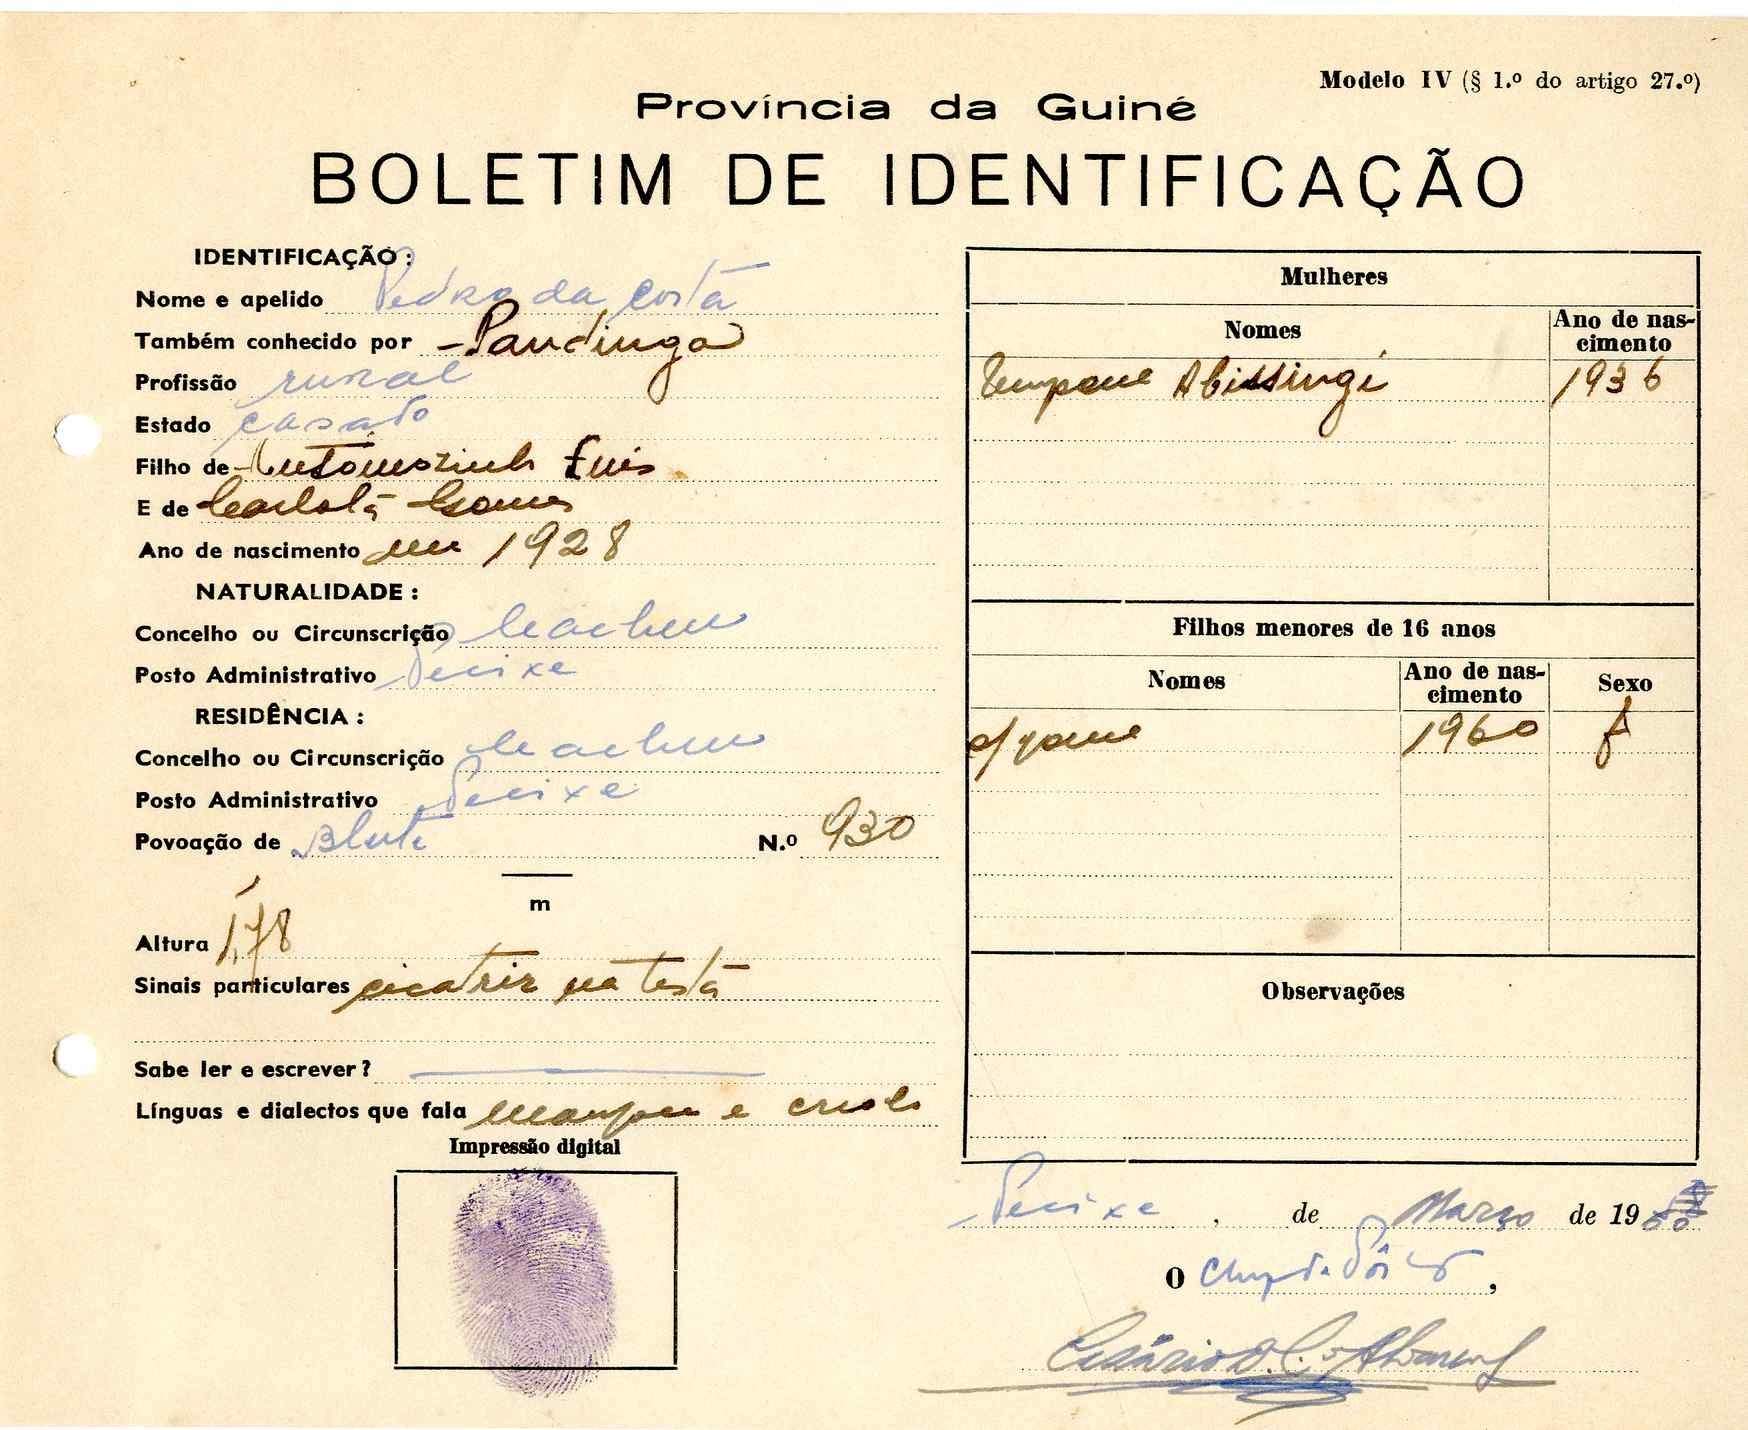 Modelo IV (§ 1.º do artigo 27.º)
Província da Guiné
BOLETIM DE IDENTIFICAÇÃO
IDENTIFICAÇÃO:
Nome e apelido Pedro da Costa
Também conhecido por - Pandinga
Profissão rural
Estado casado
Filho de Luis
E de Carlota Gomes
Ano de nascimento em 1928
NATURALIDADE:
Concelho ou Circunscrição Cacheu
Posto Administrativo Pecixe
RESIDÊNCIA:
Concelho ou Circunscrição Cacheu
Posto Administrativo Pecixe
Povoação de N.º 930
m
Altura 1,78
Sinais particulares cicatriz na testa
Sabe ler e escrever?
Línguas e dialectos que fala e criolo
Impressão digital
Mulheres
Nomes Ano de nas-
cimento
1936
Filhos menores de 16 anos
Nomes Ano de nas-
cimento Sexo
1960 f
Observações
Pecixe, de Março de 19
O Chefe de Pôsto,